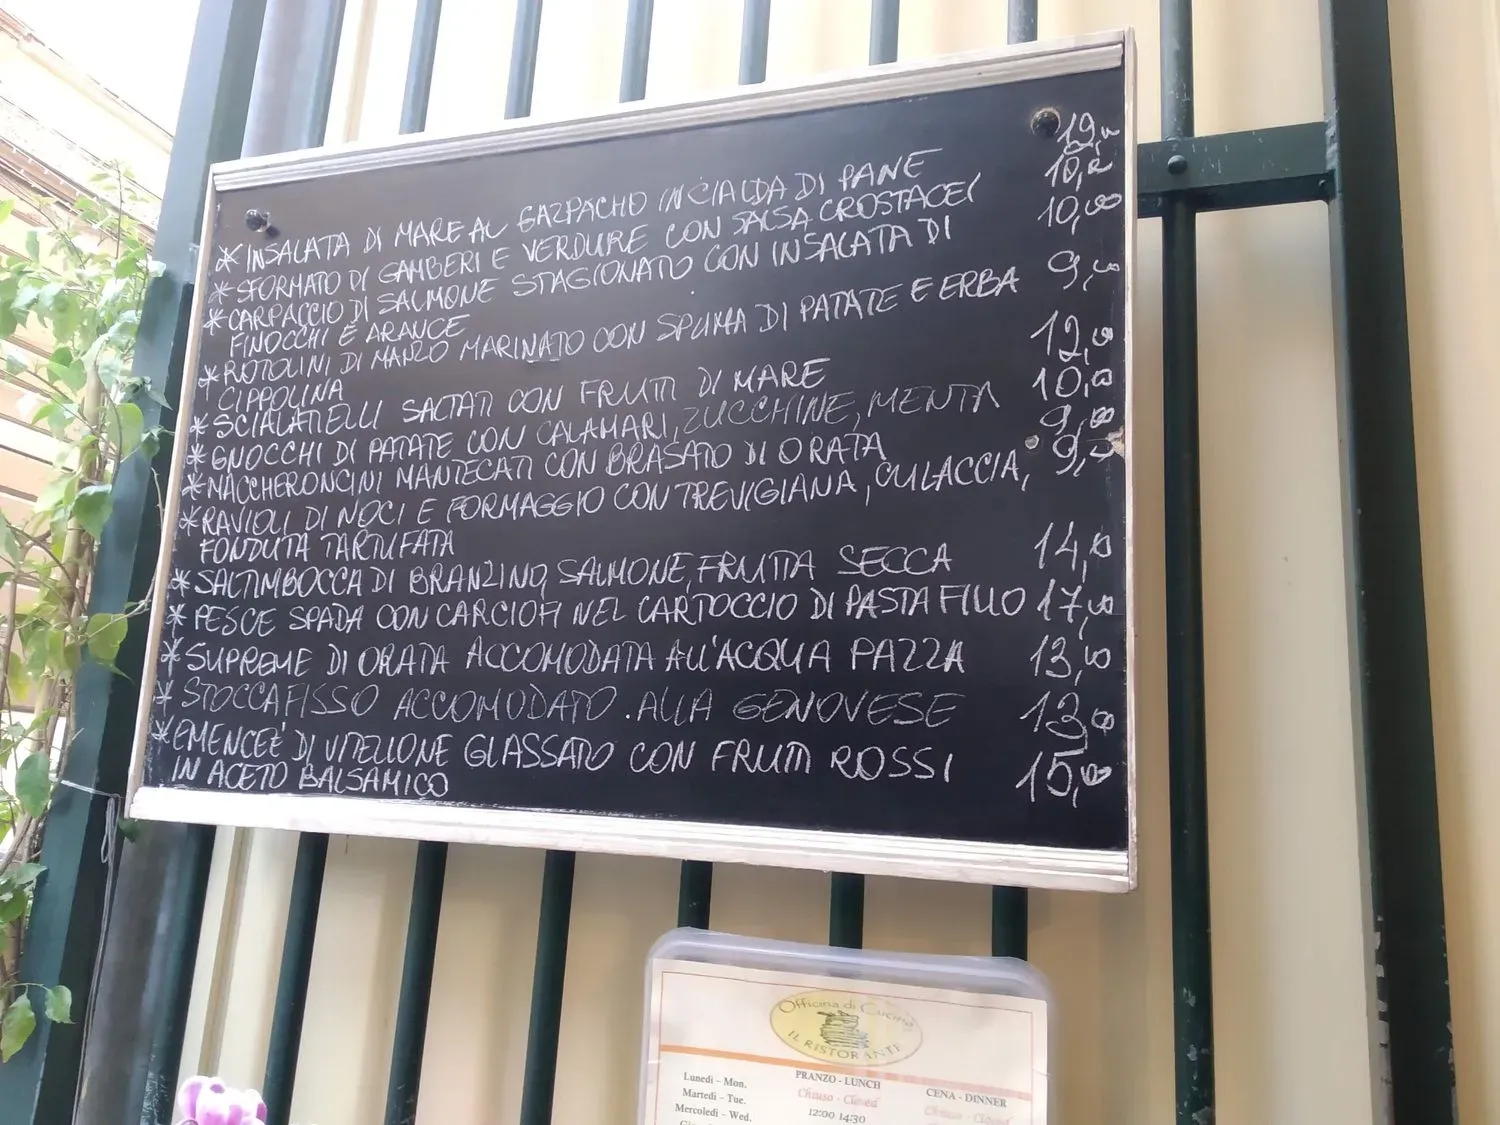 * INSALATA DI MARE AL GAZPACHO IN CIALDA DI PANE 12,00
* SFORMATO DI GAMBERI E VERDURE CON SALSA CROSTACEI 10,00
* CARPACCIO DI SALMONE STAGIONATO CON INSALATA DI 10,00
FINOCCHI E ARANCE
* ROTOLINI DI MANZO MARINATO CON SPUMA DI PATATE E ERBA 9,00
CIPPOLINA
* SCIALATIELLI SALTATI CON FRUTTI DI MARE 12,00
* GNOCCHI DI PATATE CON CALAMARI, ZUCCHINE, MENTA 10,00
* MACCHERONCINI MANTECATI CON BRASATO DI ORATA 9,00
* RAVIOLI DI NOCI E FORMAGGIO CON TREVIGIANA, CULACCIA, 9,00
FONDUTA TARTUFATA
* SALTIMBOCCA DI BRANZINO, SALMONE, FRUTTA SECCA 14,00
* PESCE SPADA CON CARCIOFI NEL CARTOCCIO DI PASTA FILLO 17,00
* SUPREME DI ORATA ACCOMODATA ALL'ACQUA PAZZA 13,00
* STOCCAFISSO ACCOMODATO ALLA GENOVESE 13,00
* EMENCEÈ DI VITELLONE GLASSATO CON FRUTTI ROSSI 15,00
IN ACETO BALSAMICO
Officina di Cucina
IL RISTORANTE
PRANZO - LUNCH CENA - DINNER
Lunedì - Mon. Chiuso - Closed Chiuso - Closed
Martedì - Tue. 12:00 14:30
Mercoledì - Wed.